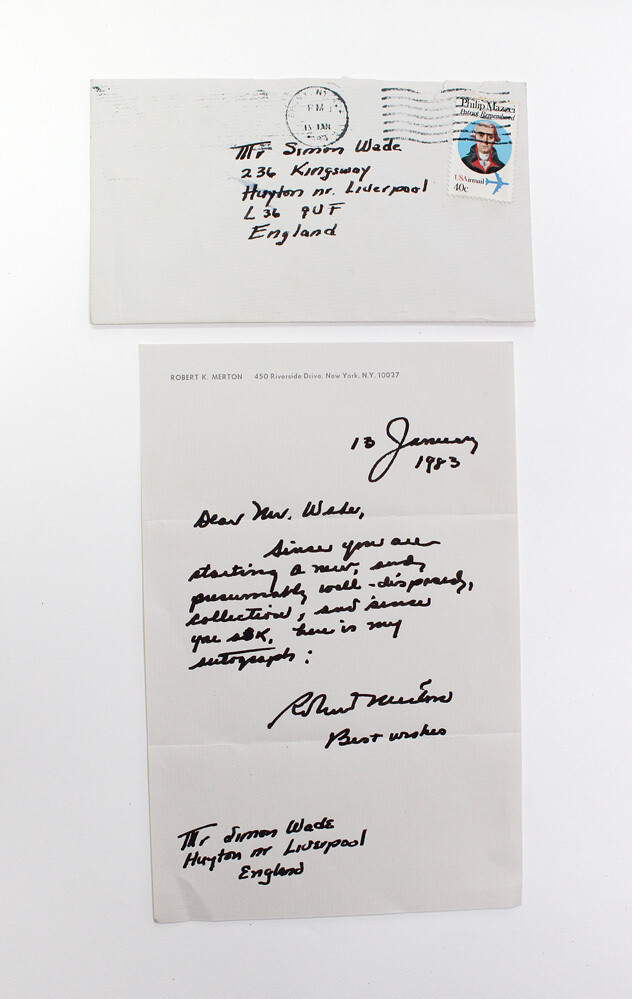 NY
PM
13 JAN
Philip Mazzei
Patriot Remembered
USAirmail
40c
Mr Simon Wade
236 Kingsway
Huyton nr. Liverpool
L 36 9UF
England
ROBERT K. MERTON 450 Riverside Drive, New York, N.Y. 10027
13 January
1983
Dear Mr. Wade,
Since you are
starting a new, and,
presumably well-disposed,
collection, and since
you ask, here is my
autograph:
Robert Merton
Best wishes
Mr Simon Wade
Huyton nr Liverpool
England